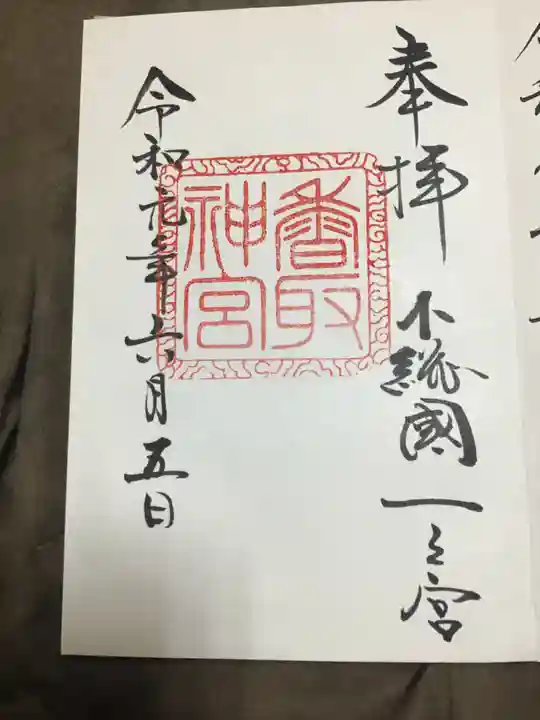 奉拝
下総國一之宮
香取
神宮
令和元年六月五日